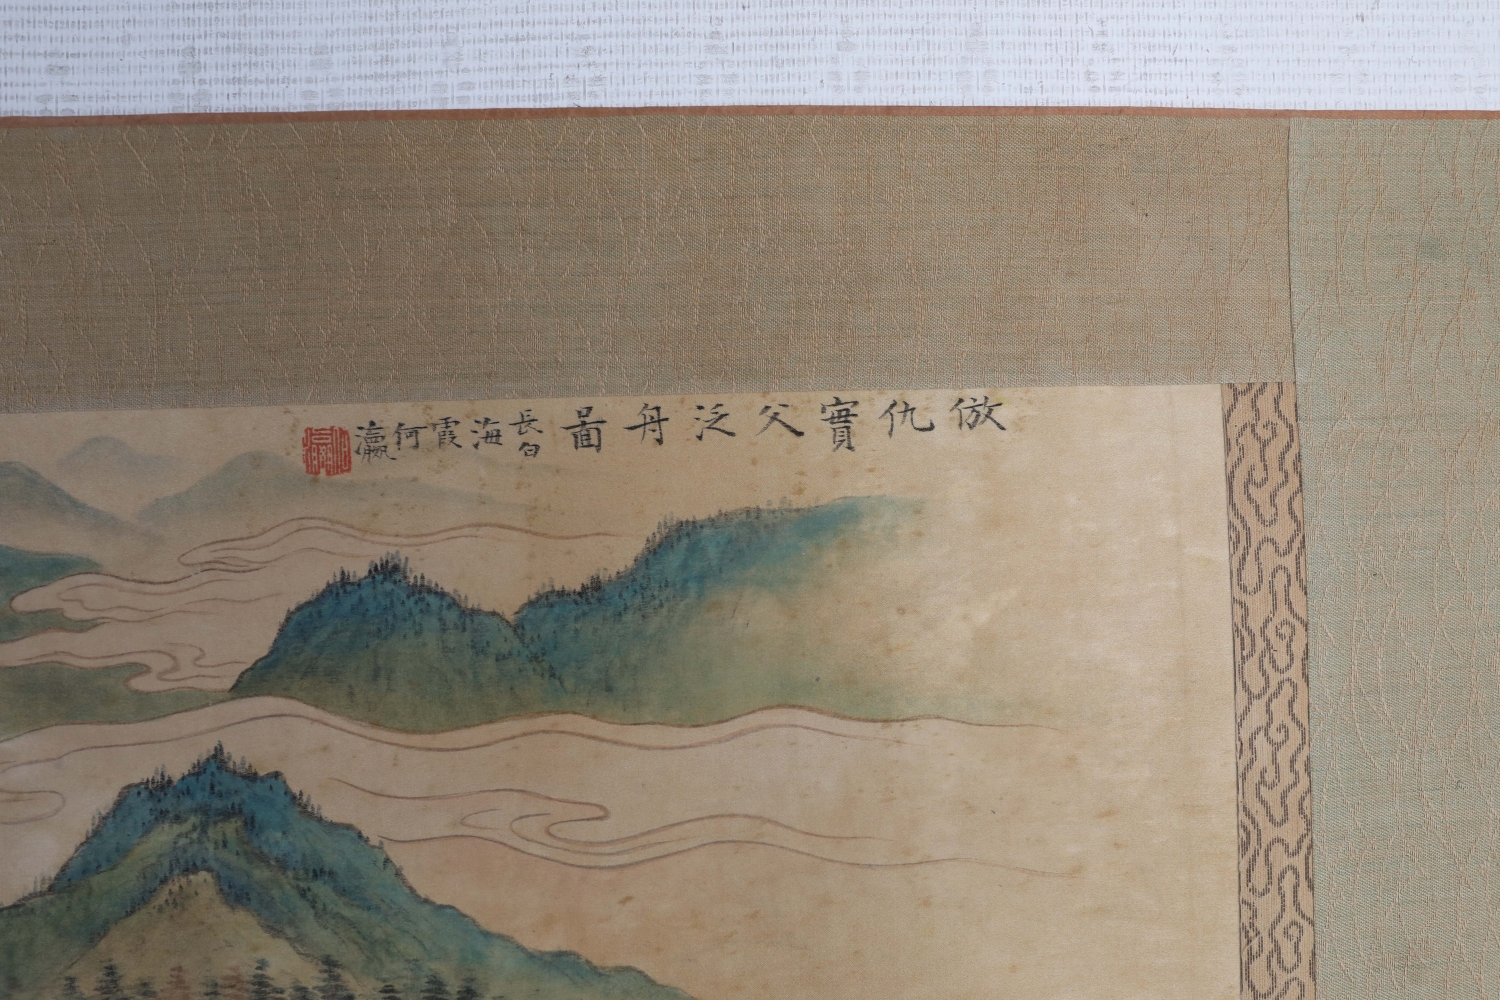 倣仇實父泛舟啚
長白海霞何瀛